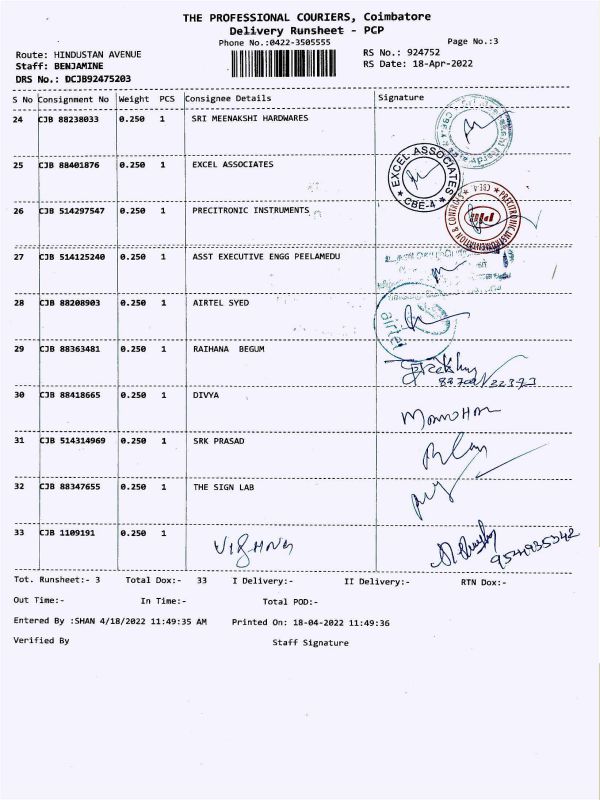 THE PROFESSIONAL COURIERS, Coimbatore
Delivery Runsheet - PCP
Phone No.:0422-3505555
Page No.:3
Route: HINDUSTAN AVENUE
RS No.: 924752
Staff: BENJAMINE
RS Date: 18-Apr-2022
DRS No.: DCJB92475203
S No Consignment No Weight PCS Consignee Details Signature
24 CJB 88238033 0.250 1 SRI MEENAKSHI HARDWARES
25 CJB 88401876 0.250 1 EXCEL ASSOCIATES
EXCEL ASSOCIATES
CBE-4
26 CJB 514297547 0.250 1 PRECITRONIC INSTRUMENTS
PRECITRONIC INSTRUMENTATION & CONTROLS CBE-4
27 CJB 514125240 0.250 1 ASST EXECUTIVE ENGG PEELAMEDU
28 CJB 88208903 0.250 1 AIRTEL SYED
airtel
29 CJB 88363481 0.250 1 RAIHANA BEGUM
30 CJB 88418665 0.250 1 DIVYA
MANOHAR
31 CJB 514314969 0.250 1 SRK PRASAD
32 CJB 88347655 0.250 1 THE SIGN LAB
33 CJB 1109191 0.250 1
Tot. Runsheet:- 3 Total Dox:- 33 I Delivery:- II Delivery:- RTN Dox:-
Out Time:- In Time:- Total POD:-
Entered By :SHAN 4/18/2022 11:49:35 AM Printed On: 18-04-2022 11:49:36
Verified By Staff Signature